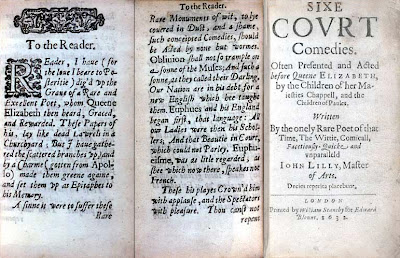 To the Reader.
Reader, I have (for
the loue I beare to Po-
steritie) dig'd up the
Graue of a Rare and
Excellent Poet, whom Queene
Elizabeth then heard, Graced,
and Rewarded. These Papers of
his, lay like dead Lawrels in a
Churchyard; But I haue gathe-
red the scattered branches vp, and
by a Charme (gotten from Apol-
lo) made them greene againe,
and set them up as Epitaphes to
his Memory.
A sinne it were to suffer these
Rare
To the Reader.
Rare Monuments of wit, to lye
couered in Dust, and a shame,
such conceipted Comedies, should
be Acted by none but wormes.
Obliuion shall not so trample on
a sonne of the Muses; And such a
sonne, as they called their Darling.
Our Nation are in his debt for a
new English which hee taught
them. Euphues and his England
began first, that language: All
our Ladies were then his Schol-
lers; And that Beautie in Court,
which could not Parley, Euphu-
eisme, was as litle regarded; as
shee which now there, speakes not
French.
These his playes Crown'd him
with applause, and the Spectators
with pleasure. Thou canst not
repent
SIXE
COVRT
Comedies.
Often Presented and Acted
before Queene ELIZABETH,
by the Children of her Ma-
iesties Chappell, and the
Children of Paules.
Written
By the onely Rare Poet of that
Time, The Witie, Comicall,
Facetiously-Quicke and
vnparalelld
IOHN LILLY, Master
of Arts.
Decies repetita placebunt.
LONDON
Printed by William Stansby for Edward
Blount. 1632.